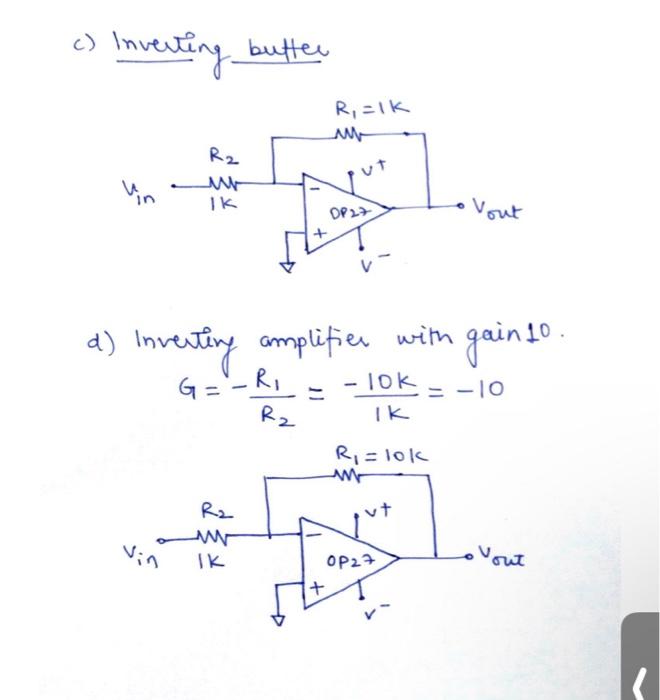 c) Inverting buffer
R1 = 1K
R2
V+
Vin
1K
-
OP27
Vout
+
V-
d) Inverting amplifier with gain 10.
G = -R1/R2 = -10K/1K = -10
R1 = 10K
R2
V+
-
Vin
1K
OP27
Vout
+
V-